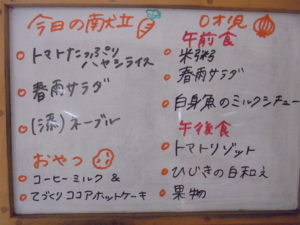 今日の献立
トマトたっぷり
ハヤシライス
春雨サラダ
(添)ネーブル
おやつ
コーヒーミルク &
てづくりココアホットケーキ
0才児
午前食
米粥
春雨サラダ
白身魚のミルクシチュー
午後食
トマトリゾット
ひじきの白和え
果物